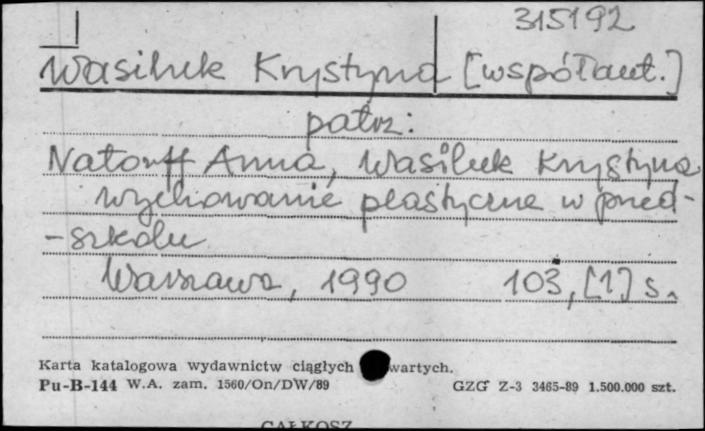 315192
Wasiluk Krystyna [współaut.]
patrz:
Natorff Anna, Wasiluk Krystyna
Wychowanie plastyczne w przed-
-szkolu
Warszawa, 1990 103, [1] s.
Karta katalogowa wydawnictw ciągłych wartych.
Pu-B-144 W.A. zam. 1560/On/DW/89 GZG Z-3 3465-89 1.500.000 szt.